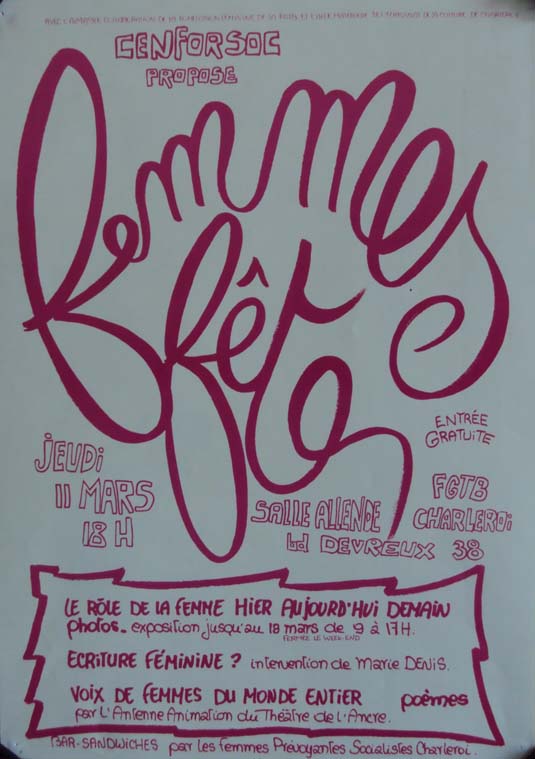 CENFORSOC
PROPOSE
femmes
fêtes
ENTRÉE
GRATUITE
JEUDI
11 MARS
18 H
SALLE ALLENDE
bd DEVREUX 38
FGTB
CHARLEROI
LE RÔLE DE LA FEMME HIER AUJOURD'HUI DEMAIN
photos - exposition jusqu'au 18 mars de 9 à 17H.
FERMÉE LE WEEK-END
ECRITURE FÉMININE ? intervention de Marie DENIS.
VOIX DE FEMMES DU MONDE ENTIER poèmes
par L'Antenne Animation du Théâtre de L'Ancre.
BAR-SANDWICHES par les femmes Prévoyantes Socialistes Charleroi.